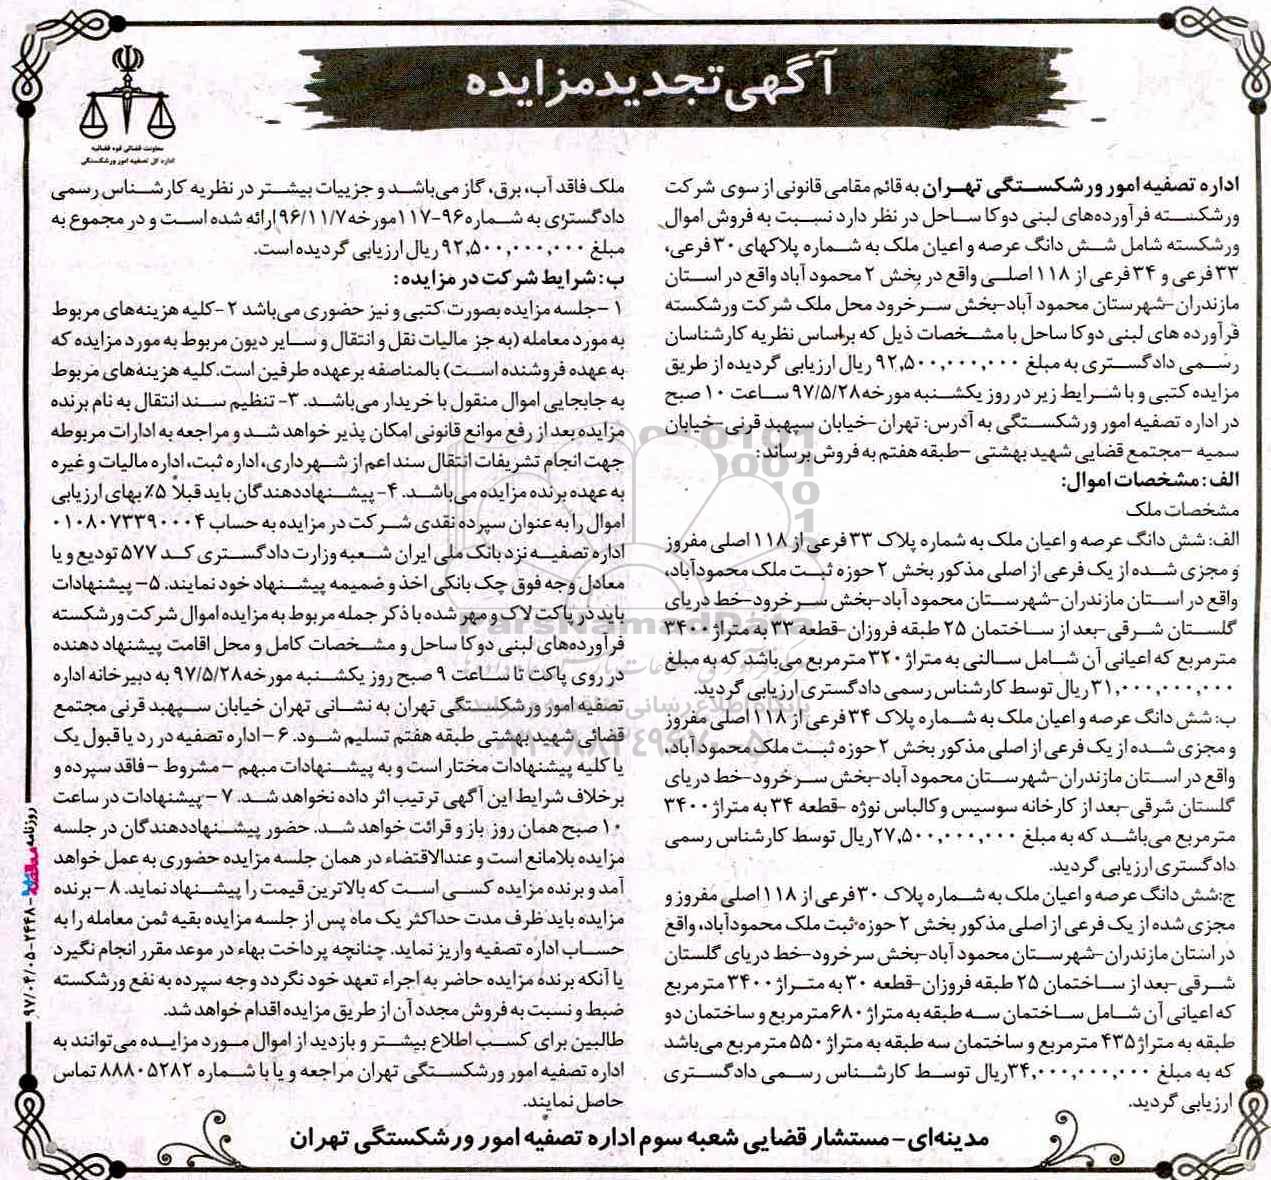 آگهی تجدید مزایده
معاونت قضائی قوه قضائیه
اداره کل تصفیه امور ورشکستگی
اداره تصفیه امور ورشکستگی تهران به قائم مقامی قانونی از سوی شرکت
ورشکسته فرآورده‌های لبنی دوکا ساحل در نظر دارد نسبت به فروش اموال
ورشکسته شامل شش دانگ عرصه و اعیان ملک به شماره پلاکهای ۳۰ فرعی،
۳۳ فرعی و ۳۴ فرعی از ۱۱۸ اصلی واقع در بخش ۲ محمود آباد واقع در استان
مازندران-شهرستان محمود آباد-بخش سرخرود محل ملک شرکت ورشکسته
فرآورده های لبنی دوکا ساحل با مشخصات ذیل که براساس نظریه کارشناسان
رسمی دادگستری به مبلغ ۹۲,۵۰۰,۰۰۰,۰۰۰ ریال ارزیابی گردیده از طریق
مزایده کتبی و با شرایط زیر در روز یکشنبه مورخه ۹۷/۵/۲۸ ساعت ۱۰ صبح
در اداره تصفیه امور ورشکستگی به آدرس: تهران-خیابان سپهبد قرنی-خیابان
سمیه -مجتمع قضایی شهید بهشتی -طبقه هفتم به فروش برساند:
الف: مشخصات اموال:
مشخصات ملک
الف: شش دانگ عرصه و اعیان ملک به شماره پلاک ۳۳ فرعی از ۱۱۸ اصلی مفروز
و مجزی شده از یک فرعی از اصلی مذکور بخش ۲ حوزه ثبت ملک محمودآباد،
واقع در استان مازندران-شهرستان محمود آباد-بخش سرخرود-خط دریای
گلستان شرقی-بعد از ساختمان ۲۵ طبقه فروزان-قطعه ۳۳ به متراژ ۳۴۰۰
مترمربع که اعیانی آن شامل سالنی به متراژ ۳۲۰ مترمربع می‌باشد که به مبلغ
۳۱,۰۰۰,۰۰۰,۰۰۰ ریال توسط کارشناس رسمی دادگستری ارزیابی گردید.
ب: شش دانگ عرصه و اعیان ملک به شماره پلاک ۳۴ فرعی از ۱۱۸ اصلی مفروز
و مجزی شده از یک فرعی از اصلی مذکور بخش ۲ حوزه ثبت ملک محمود آباد،
واقع در استان مازندران-شهرستان محمود آباد-بخش سرخرود-خط دریای
گلستان شرقی-بعد از کارخانه سوسیس و کالباس نوژه -قطعه ۳۴ به متراژ ۳۴۰۰
مترمربع می‌باشد که به مبلغ ۲۷,۵۰۰,۰۰۰,۰۰۰ ریال توسط کارشناس رسمی
دادگستری ارزیابی گردید.
ج: شش دانگ عرصه و اعیان ملک به شماره پلاک ۳۰ فرعی از ۱۱۸ اصلی مفروز و
مجزی شده از یک فرعی از اصلی مذکور بخش ۲ حوزه ثبت ملک محمودآباد، واقع
در استان مازندران-شهرستان محمود آباد-بخش سرخرود-خط دریای گلستان
شرقی-بعد از ساختمان ۲۵ طبقه فروزان-قطعه ۳۰ به متراژ ۳۴۰۰ مترمربع
که اعیانی آن شامل ساختمان سه طبقه به متراژ ۶۸۰ مترمربع و ساختمان دو
طبقه به متراژ ۴۳۵ مترمربع و ساختمان سه طبقه به متراژ ۵۵۰ مترمربع می‌باشد
که به مبلغ ۳۴,۰۰۰,۰۰۰,۰۰۰ ریال توسط کارشناس رسمی دادگستری
ارزیابی گردید.
ملک فاقد آب، برق، گاز می‌باشد و جزییات بیشتر در نظریه کارشناس رسمی
دادگستری به شماره ۹۶-۱۱۷ مورخه ۹۶/۱۱/۷ ارائه شده است و در مجموع به
مبلغ ۹۲,۵۰۰,۰۰۰,۰۰۰ ریال ارزیابی گردیده است.
ب: شرایط شرکت در مزایده:
۱ -جلسه مزایده بصورت کتبی و نیز حضوری می‌باشد ۲ -کلیه هزینه‌های مربوط
به مورد معامله (به جز مالیات نقل و انتقال و سایر دیون مربوط به مورد مزایده که
به عهده فروشنده است) بالمناصفه بر عهده طرفین است. کلیه هزینه‌های مربوط
به جابجایی اموال منقول با خریدار می‌باشد. ۳- تنظیم سند انتقال به نام برنده
مزایده بعد از رفع موانع قانونی امکان پذیر خواهد شد و مراجعه به ادارات مربوطه
جهت انجام تشریفات انتقال سند اعم از شهرداری، اداره ثبت، اداره مالیات و غیره
به عهده برنده مزایده می‌باشد. ۴- پیشنهاددهندگان باید قبلاً ۵٪ بهای ارزیابی
اموال را به عنوان سپرده نقدی شرکت در مزایده به حساب ۰۱۰۸۰۷۳۳۹۰۰۰۴
اداره تصفیه نزد بانک ملی ایران شعبه وزارت دادگستری کد ۵۷۷ تودیع و یا
معادل وجه فوق چک بانکی اخذ و ضمیمه پیشنهاد خود نمایند. ۵- پیشنهادات
باید در پاکت لاک و مهر شده با ذکر جمله مربوط به مزایده اموال شرکت ورشکسته
فرآورده‌های لبنی دوکا ساحل و مشخصات کامل و محل اقامت پیشنهاد دهنده
در روی پاکت تا ساعت ۹ صبح روز یکشنبه مورخه ۹۷/۵/۲۸ به دبیرخانه اداره
تصفیه امور ورشکستگی تهران به نشانی تهران خیابان سپهبد قرنی مجتمع
قضائی شهید بهشتی طبقه هفتم تسلیم شود. ۶ -اداره تصفیه در رد یا قبول یک
یا کلیه پیشنهادات مختار است و به پیشنهادات مبهم - مشروط - فاقد سپرده و
برخلاف شرایط این آگهی ترتیب اثر داده نخواهد شد. ۷ -پیشنهادات در ساعت
۱۰ صبح همان روز باز و قرائت خواهد شد. حضور پیشنهاددهندگان در جلسه
مزایده بلامانع است و عندالاقتضاء در همان جلسه مزایده حضوری به عمل خواهد
آمد و برنده مزایده کسی است که بالاترین قیمت را پیشنهاد نماید. ۸ -برنده
مزایده باید ظرف مدت حداکثر یک ماه پس از جلسه مزایده بقیه ثمن معامله را به
حساب اداره تصفیه واریز نماید. چنانچه پرداخت بهاء در موعد مقرر انجام نگیرد
یا آنکه برنده مزایده حاضر به اجراء تعهد خود نگردد وجه سپرده به نفع ورشکسته
ضبط و نسبت به فروش مجدد آن از طریق مزایده اقدام خواهد شد.
طالبین برای کسب اطلاع بیشتر و بازدید از اموال مورد مزایده می‌توانند به
اداره تصفیه امور ورشکستگی تهران مراجعه و یا با شماره ۸۸۸۰۵۲۸۲ تماس
حاصل نمایند.
مدینه‌ای - مستشار قضایی شعبه سوم اداره تصفیه امور ورشکستگی تهران
روزنامه مناقصه مزایده - ۲۴۴۸ - ۹۷/۰۴/۰۵
ParsNamadData
پایگاه اطلاع رسانی